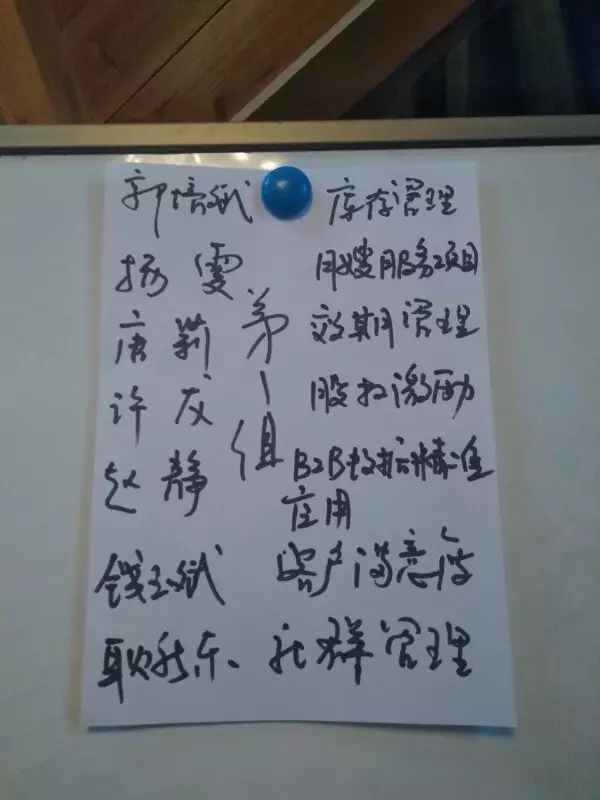 郭培斌 库存管理
杨雯 月嫂服务项目
唐莉 效期管理
第一组
许友 股权激励
赵静 B2B数据精准
应用
钱玉斌 客户满意度
耿秋东、社群管理